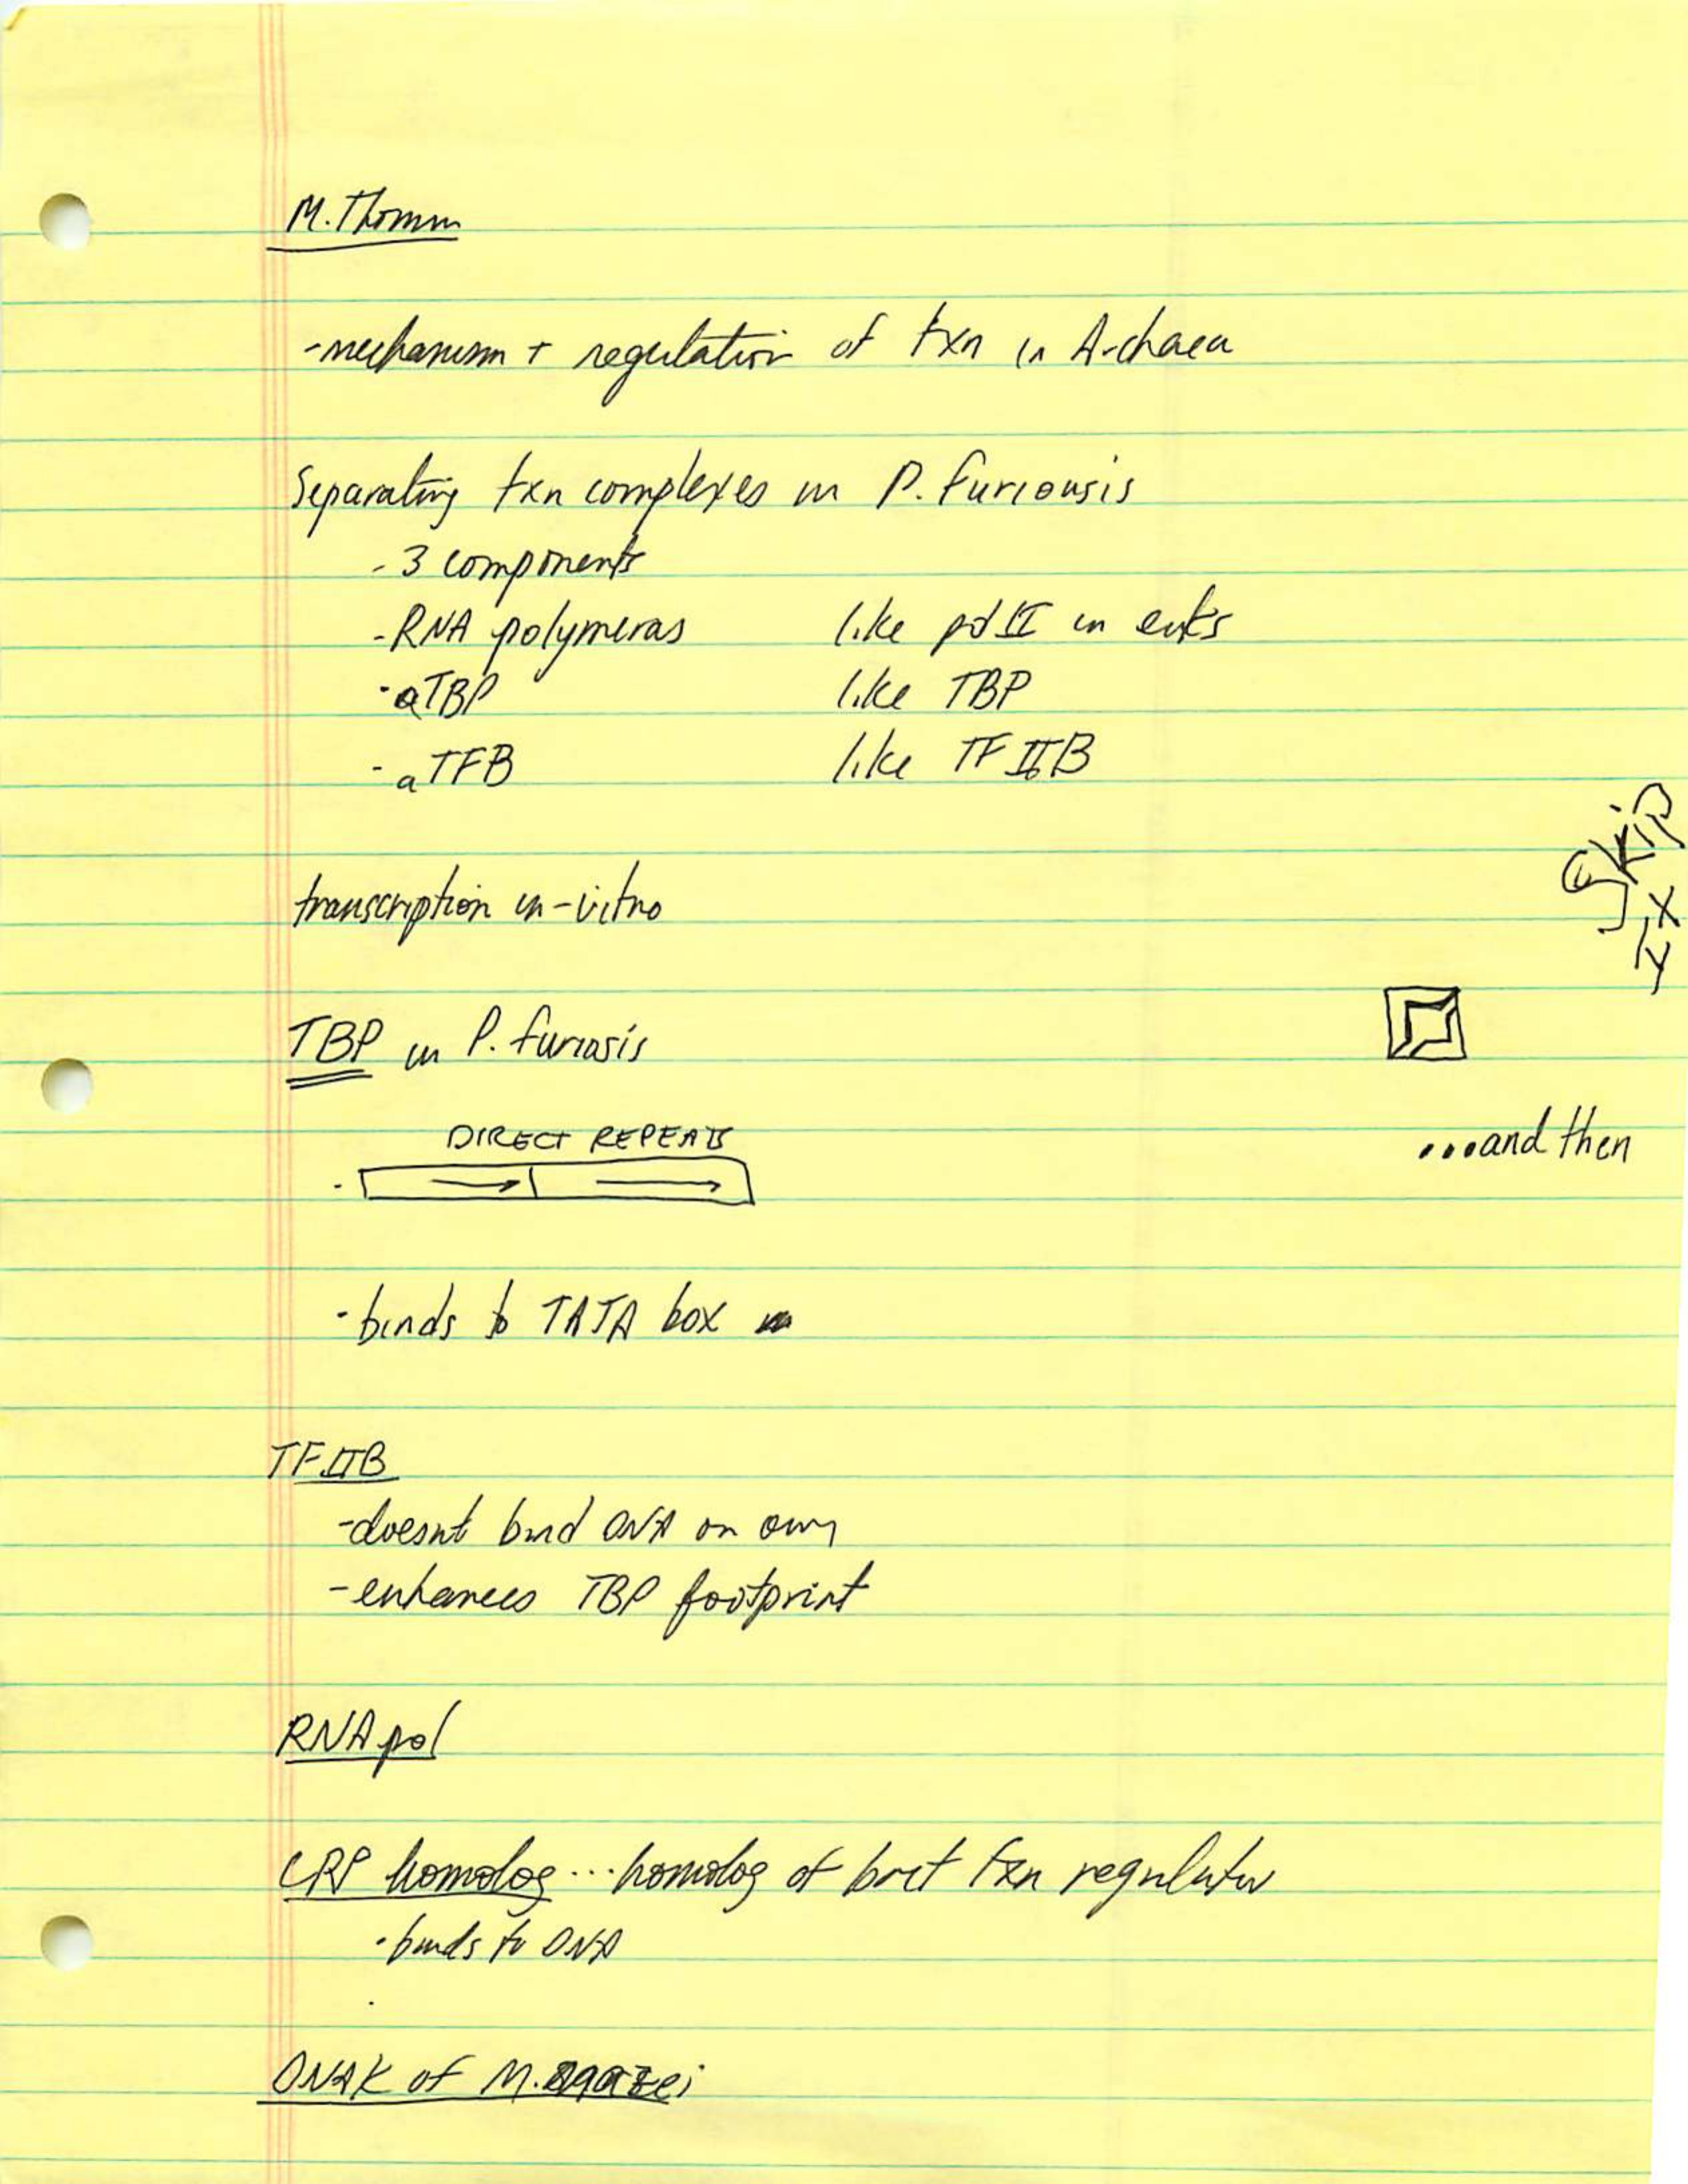 M. Thomm
- mechanism + regulation of txn in Archaea
Separating txn complexes in P. furiousis
- 3 components
- RNA polymeras like pol II in euks
- aTBP like TBP
- aTFB like TF IIB
transcription in-vitro
TBP in P. furiosis
DIRECT REPEATS
- binds to TATA box in
TFIIB
- doesnt bind DNA on own
- enhances TBP footprint
RNA pol
CRP homolog ... homolog of bact txn regulator
- binds to DNA
DNAK of M. mazei
Skip
1x
...and then